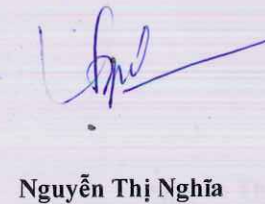 Nguyễn Thị Nghĩa